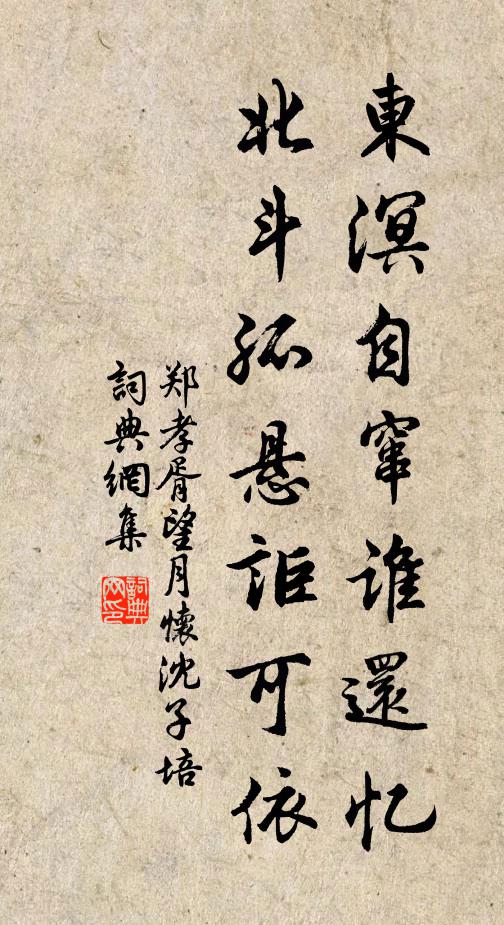 東溟自窜谁還忆
北斗孤悬詎可依
郑孝胥望月懷沈子培
詞典網集
詞典网印